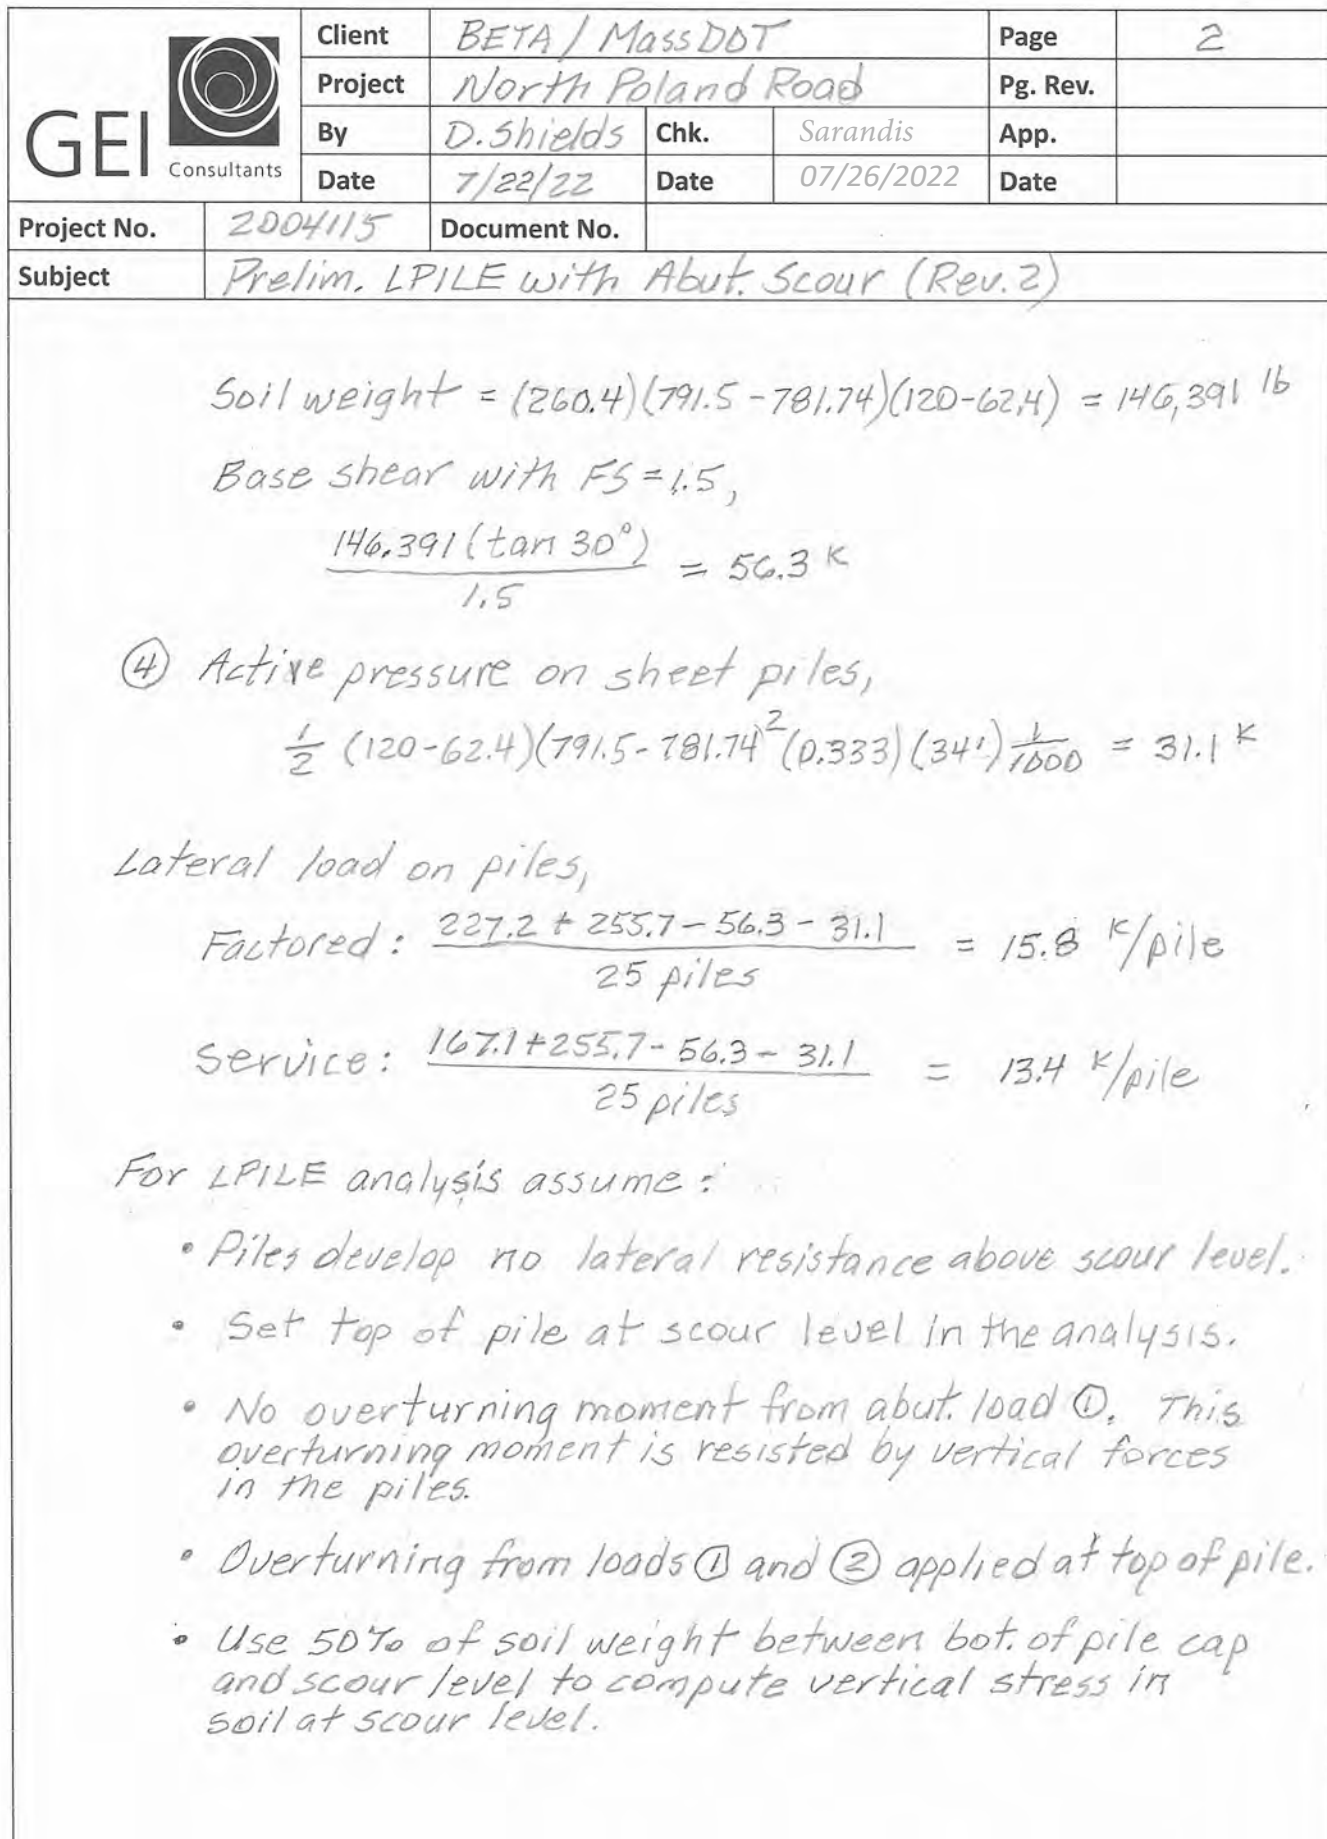 GEI Consultants
Client BETA / MassDOT Page 2
Project North Poland Road Pg. Rev.
By D. Shields Chk. Sarandis App.
Date 7/22/22 Date 07/26/2022 Date
Project No. 2004115 Document No.
Subject Prelim. LPILE with Abut. Scour (Rev. 2)
Soil weight = (260.4)(791.5 - 781.74)(120-62.4) = 146,391 lb
Base shear with FS = 1.5,
146.391 (tan 30°) / 1.5 = 56.3 K
④ Active pressure on sheet piles,
1/2 (120-62.4)(791.5 - 781.74²(0.333)(34') 1/1000 = 31.1 K
Lateral load on piles,
Factored: 227.2 + 255.7 - 56.3 - 31.1 / 25 piles = 15.8 K/pile
Service: 167.1 + 255.7 - 56.3 - 31.1 / 25 piles = 13.4 K/pile
For LPILE analysis assume:
• Piles develop no lateral resistance above scour level.
• Set top of pile at scour level in the analysis.
• No overturning moment from abut. load ①. This
overturning moment is resisted by vertical forces
in the piles.
• Overturning from loads ① and ② applied at top of pile.
• Use 50% of soil weight between bot. of pile cap
and scour level to compute vertical stress in
soil at scour level.